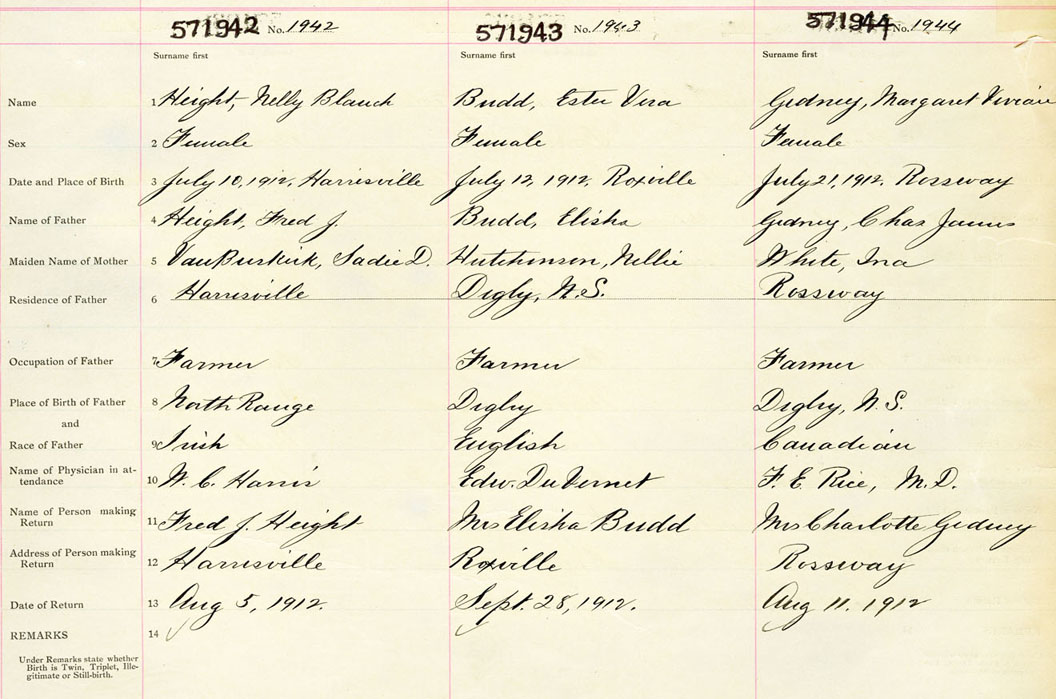 571942 No. 1942 571943 No. 1943 571944 No. 1944
Surname first Surname first Surname first
Name 1 Height, Nelly Blanch Budd, Ester Vera Gidney, Margaret Vivian
Sex 2 Female Female Female
Date and Place of Birth 3 July 10, 1912. Harrisville July 12, 1912. Roxville July 21, 1912. Rossway
Name of Father 4 Height, Fred J. Budd, Elisha Gidney, Chas James
Maiden Name of Mother 5 VanBuskirk, Sadie D. Hutchinson, Nellie White, Ina
Residence of Father 6 Harrisville Digby, N.S. Rossway
Occupation of Father 7 Farmer Farmer Farmer
Place of Birth of Father 8 North Range Digby Digby, N.S.
and
Race of Father 9 Irish English Canadian
Name of Physician in at-
tendance 10 W. C. Harris Edw. DuVernet F. E. Rice, M.D.
Name of Person making
Return 11 Fred J. Height Mrs Elisha Budd Mrs Charlotte Gidney
Address of Person making
Return 12 Harrisville Roxville Rossway
Date of Return 13 Aug 5, 1912. Sept. 28, 1912. Aug 11. 1912
REMARKS 14
Under Remarks state whether
Birth is Twin, Triplet, Ille-
gitimate or Still-birth.